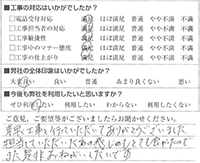 ■工事の対応はいかがでしたか？
□電話受付対応 満足 ほぼ満足 普通 やや不満 不満
□工事担当者の対応 満足 ほぼ満足 普通 やや不満 不満
□工事敏捷性 満足 ほぼ満足 普通 やや不満 不満
□工事中のマナー態度 満足 ほぼ満足 普通 やや不満 不満
□工事の仕上がり 満足 ほぼ満足 普通 やや不満 不満
■弊社の全体印象はいかがでしたか？
大変良い 良い 普通 あまり良くない 悪い
■今後も弊社を利用したいと思いますか？
ぜひ利用したい 利用したい わからない 利用したくない
ご意見、ご要望等がございましたらお聞かせください。
工事を行っていただいてありがとうございました
担当していただいた
また是非おねがいしたいです